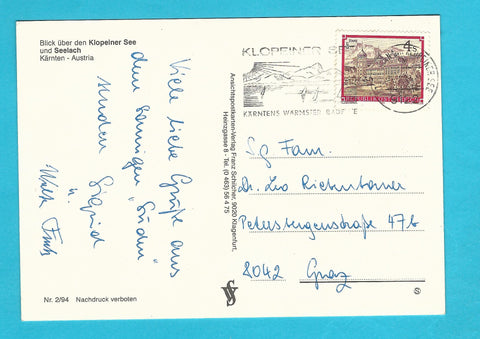 Blick über den Klopeiner See
und Seelach
Kärnten - Austria
Viele liebe Grüße aus
dem sonnigen "Süden"
senden Sigrid
u.
Walter
Nr. 2/94 Nachdruck verboten
Ansichtspostkarten-Verlag Franz Schilcher, 9020 Klagenfurt,
Heinzgasse 8 - Tel. (0 463) 56 4 75
KLOPEINER SEE
KÄRNTENS WÄRMSTER BADESEE
4
REPUBLIK ÖSTERREICH
Sg Fam.
Dr. Leo
Petersbergenstraße 47b
8042 Graz
S